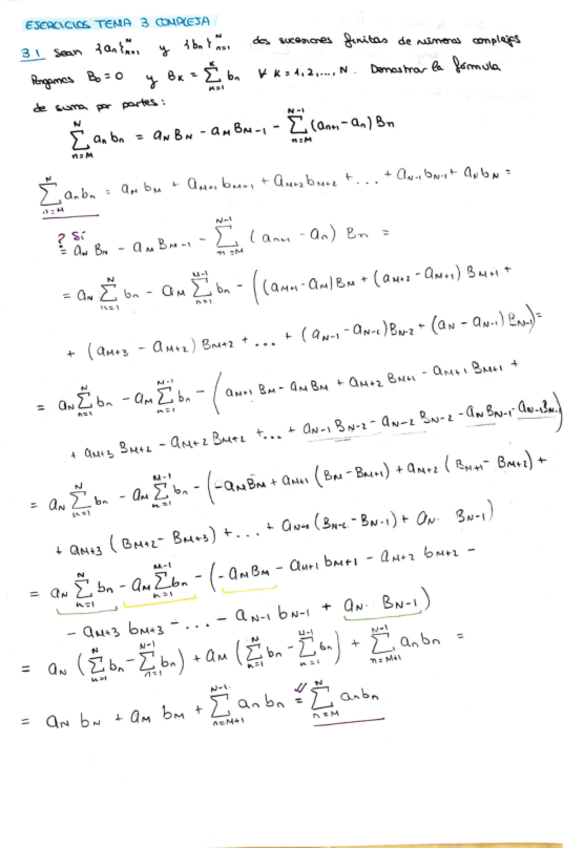 EJERCICIOS TEMA 3 COMPLEJA
3.1 Sean {an}ᴺₙ₌₁ y {bn}ᴺₙ₌₁ dos sucesiones finitas de números complejos
Pongamos B₀ = 0 y Bₖ = ∑ᴷₙ₌₁ bn ∀ k = 1, 2, ..., N. Demostrar la fórmula
de suma por partes:
∑ᴺₙ₌ᴍ an bn = aN BN - aM BM-1 - ∑ᴺ⁻¹ₙ₌ᴍ (an+1 - an) Bn
∑ᴺₙ₌ᴍ an bn = aM bM + aM+1 bM+1 + aM+2 bM+2 + ... + aN-1 bN-1 + aN bN =
? Sí
= aN BN - aM BM-1 - ∑ᴺ⁻¹ₙ₌ᴍ (an+1 - an) Bn =
= aN ∑ᴺₙ₌₁ bn - aM ∑ᴹ⁻¹ₙ₌₁ bn - ((aM+1 - aM) BM + (aM+2 - aM+1) BM+1 +
+ (aM+3 - aM+2) BM+2 + ... + (aN-1 - aN-2) BN-2 + (aN - aN-1) BN-1) =
= aN ∑ᴺₙ₌₁ bn - aM ∑ᴹ⁻¹ₙ₌₁ bn - (aM+1 BM - aM BM + aM+2 BM+1 - aM+1 BM+1 +
+ aM+3 BM+2 - aM+2 BM+2 + ... + aN-1 BN-2 - aN-2 BN-2 - aN BN-1 - aN-1 BN-1)
= aN ∑ᴺₙ₌₁ bn - aM ∑ᴹ⁻¹ₙ₌₁ bn - (-aM BM + aM+1 (BM - BM+1) + aM+2 (BM+1 - BM+2) +
+ aM+3 (BM+2 - BM+3) + ... + aN-1 (BN-2 - BN-1) + aN · BN-1)
= aN ∑ᴺₙ₌₁ bn - aM ∑ᴹ⁻¹ₙ₌₁ bn - (-aM BM - aM+1 bM+1 - aM+2 bM+2 -
- aM+3 bM+3 - ... - aN-1 bN-1 + aN · BN-1)
= aN (∑ᴺₙ₌₁ bn - ∑ᴺ⁻¹ₙ₌₁ bn) + aM (∑ᴹₙ₌₁ bn - ∑ᴹ⁻¹ₙ₌₁ bn) + ∑ᴺ⁻¹ₙ₌ᴍ₊₁ an bn =
= aN bN + aM bM + ∑ᴺ⁻¹ₙ₌ᴍ₊₁ an bn = ∑ᴺₙ₌ᴍ an bn